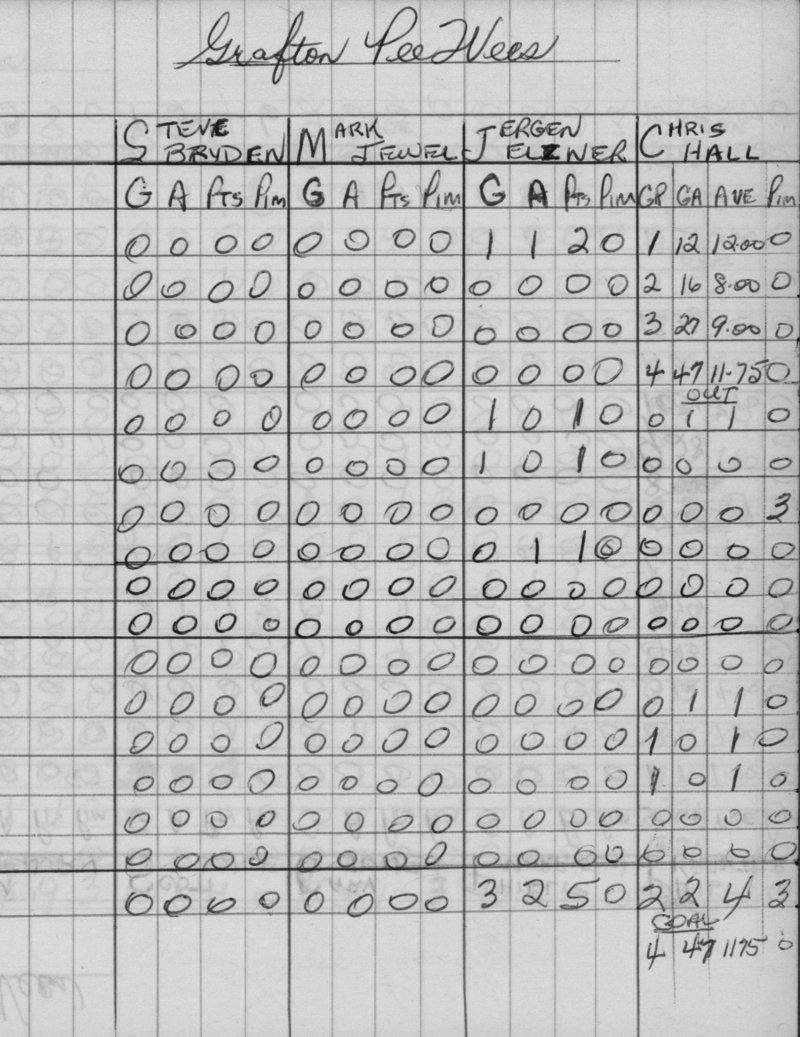 Grafton Pee Wees
STEVE MARK JERGEN CHRIS
BRYDEN JEWEL ELZNER HALL
G A Pts Pim G A Pts Pim G A Pts Pim GP GA AVE Pim
0 0 0 0 0 0 0 0 1 1 2 0 1 12 12.00 0
0 0 0 0 0 0 0 0 0 0 0 0 2 16 8.00 0
0 0 0 0 0 0 0 0 0 0 0 0 3 27 9.00 0
0 0 0 0 0 0 0 0 0 0 0 0 4 47 11-75 0
OUT
0 0 0 0 0 0 0 0 1 0 1 0 0 1 1 0
0 0 0 0 0 0 0 0 1 0 1 0 0 0 0 0
0 0 0 0 0 0 0 0 0 0 0 0 0 0 0 3
0 0 0 0 0 0 0 0 0 1 1 0 0 0 0 0
0 0 0 0 0 0 0 0 0 0 0 0 0 0 0 0
0 0 0 0 0 0 0 0 0 0 0 0 0 0 0 0
0 0 0 0 0 0 0 0 0 0 0 0 0 0 0 0
0 0 0 0 0 0 0 0 0 0 0 0 0 1 1 0
0 0 0 0 0 0 0 0 0 0 0 0 1 0 1 0
0 0 0 0 0 0 0 0 0 0 0 0 1 0 1 0
0 0 0 0 0 0 0 0 0 0 0 0 0 0 0 0
0 0 0 0 0 0 0 0 0 0 0 0 0 0 0 0
0 0 0 0 0 0 0 0 3 2 5 0 2 2 4 3
GOAL
4 47 1175 0